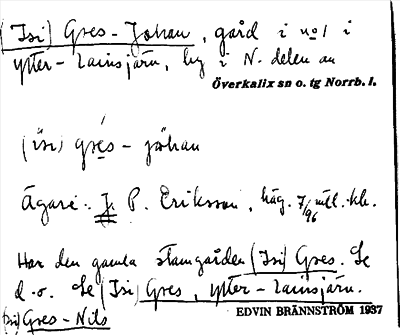 (Isi) Gres-Johan, gård i no 1 i
ytter-Lainsjärn, by i N. delen av
Överkalix sn o. tg Norrb. l.
(ísi) grés - jöhan
Ägare: J. P. Eriksson, häg. 7/96 mtl. kh.
Har den gamla stamgården (Isi) Gres. Se
d. o. Se (Isi) Gres, ytter-Lainsjärn.
(Isi) Gres-Nils
EDVIN BRÄNNSTRÖM 1937